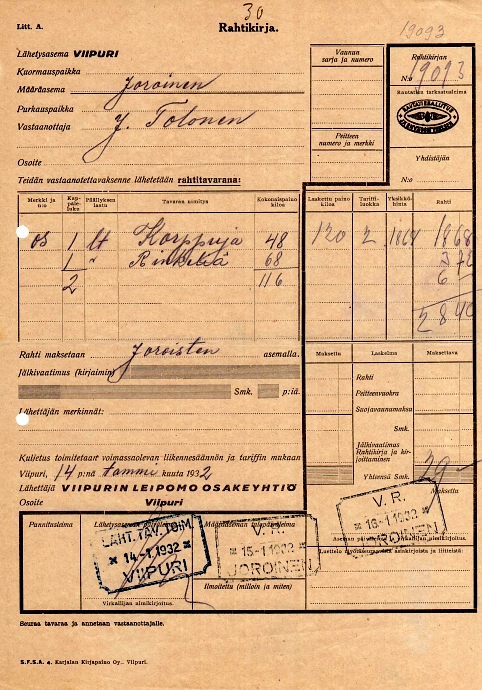 30
Litt. A.
Rahtikirja.
19093
Lähetysasema VIIPURI
Kuormauspaikka
Määräasema Joroinen
Purkauspaikka
Vastaanottaja J. Tolonen
Osoite
Vaunun sarja ja numero
Peitteen numero ja merkki
Rahtikirjan
N:o 19093
Rautatien tarkastusleima
RAUTATIEHALLITUS
Yhdistäjän
N:o
Teidän vastaanotettavaksenne lähetetään rahtitavarana:
Merkki ja n:o Kappaleluku Päällyksen laatu Tavaran nimitys Kokonaispaino kiloa Laskettu paino kiloa Tariffiluokka Yksikköhinta Rahti
OS 1 lt Korppuja 48 120 2 1868
1 " Rinkeliä 68
2 116 6
28 40
Rahti maksetaan Joroisten asemalla.
Jälkivaatimus (kirjaimin)
Smk. p:iä.
Lähettäjän merkinnät:
Maksettu Laskelma Maksettava
Rahti
Peitteenvuokra
Suojavaunumaksu
Smk.
Jälkivaatimus
Rahtikirja ja kirjoittaminen
Yhteensä Smk. 29 —
Maksettu
Kuljetus toimitetaan voimassaolevan liikennesäännön ja tariffin mukaan
Viipuri, 14 p:nä tammi kuuta 1932
Lähettäjä VIIPURIN LEIPOMO OSAKEYHTIÖ
Osoite Viipuri
Punnitusleima
Lähetysaseman päiväleima
Määräaseman tulopäiväleima
LÄHT. TAV. TOIM.
14.-1.1932
VIIPURI
V. R.
15-1.1932
JOROINEN
V. R.
16-1.1932
JOROINEN
Ilmoitettu (milloin ja miten)
Luettelo
Virkailijan nimikirjoitus.
Seuraa tavaraa ja annetaan vastaanottajalle.
S.F.S.A. 4. Karjalan Kirjapaino Oy., Viipuri.